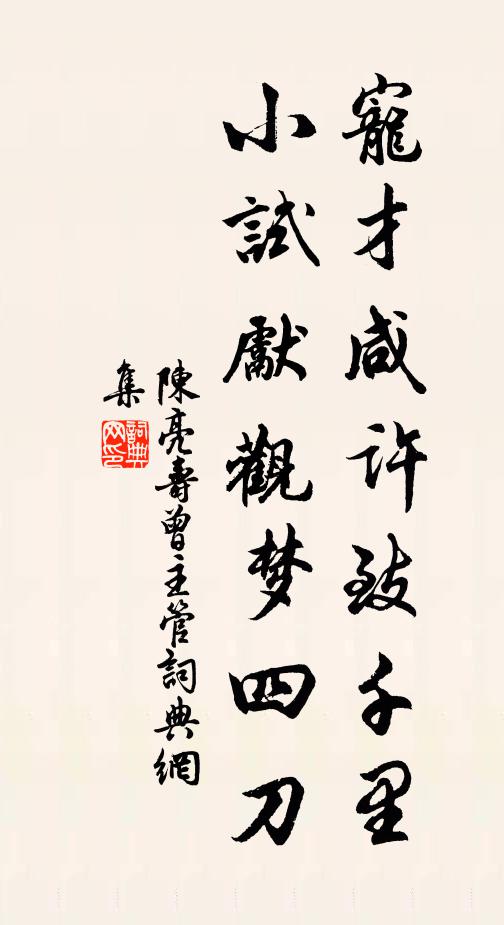 寵才咸许致千里
小試獻觀梦四刀
陳亮壽曾主管詞典網
集
詞典网印